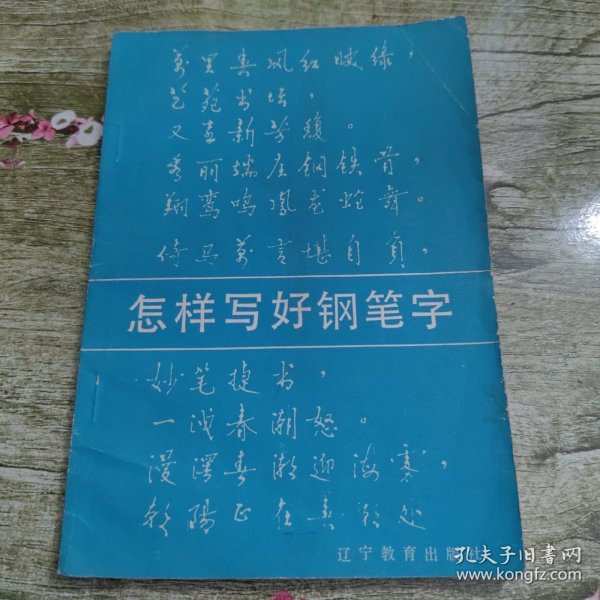 万里春风红映绿，
艺苑书坛，
又直新芳馥。
秀丽端庄钢铁骨，
翔鸾鸣凤龙蛇舞。
倚马萬言堪自負，
怎样写好钢笔字
妙笔捷书，
一浅春潮怒。
漫湮春潮迎海
朝陽正在春潮处
辽宁教育出版社
孔夫子旧书网
www.kongfz.com